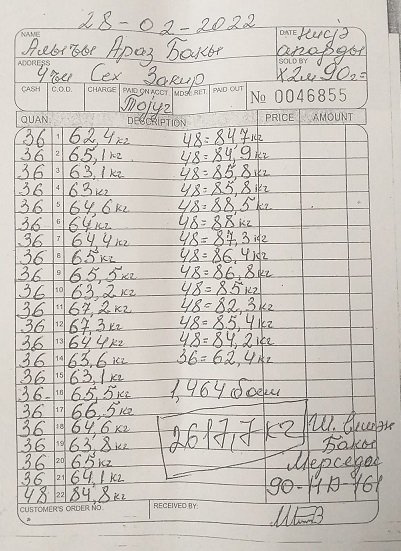 28-02-2022
NAME DATE Нисјә
Алыҹы Араз Бакы апарды
ADDRESS SOLD BY
Чҹы Сех Закир
CASH C.O.D. CHARGE PAID ON ACCT. MDSE. RET. PAID OUT
Тојуг № 0046855
QUAN. DESCRIPTION PRICE AMOUNT
36 1 62,4кг 48=84,7кг
36 2 65,1кг 48=84,9кг
36 3 63,1кг 48=85,8кг
36 4 63кг 48=85,8кг
36 5 64,6кг 48=88,5кг
36 6 64кг 48=88кг
36 7 64,4кг 48=87,3кг
36 8 65кг 48=86,4кг
36 9 65,5кг 48=86,8кг
36 10 63,2кг 48=85кг
36 11 67,2кг 48=82,3кг
36 12 67,3кг 48=85,4кг
36 13 64,4кг 48=84,2кг
36 14 63,6кг 36=62,4кг
36 15 63,1кг
36 16 65,5кг 1,464 баш
36 17 66,5кг
36 18 64,6кг 2617,7кг
36 19 63,8кг Бакы
36 20 65кг Мерседес
36 21 64,1кг 90-НА-761
48 22 84,8кг
CUSTOMER'S ORDER NO. RECEIVED BY: